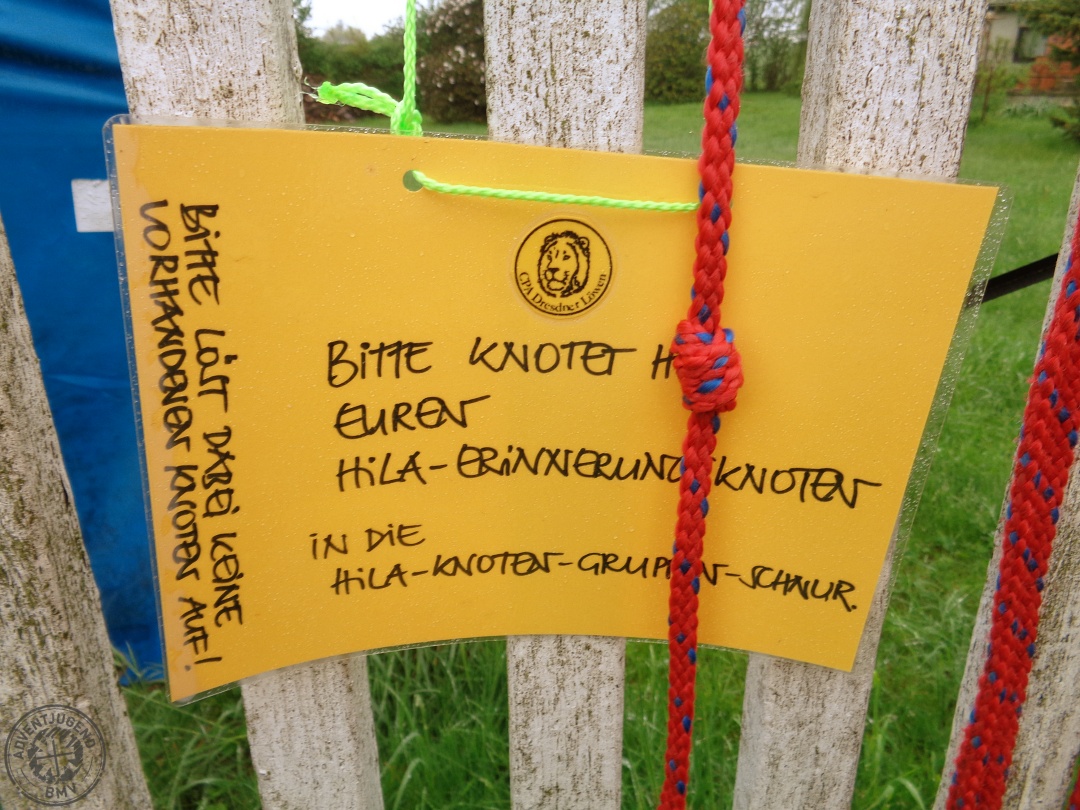 CPA Dresdner Löwen
BITTE KNOTET H
EUREN
HILA-ERINNERUNG KNOTEN
IN DIE
HILA-KNOTEN-GRUPPEN-SCHNUR.
BITTE LÖST DABEI KEINE
VORHANDENEN KNOTEN AUF!
ADVENTJUGEND
BMV